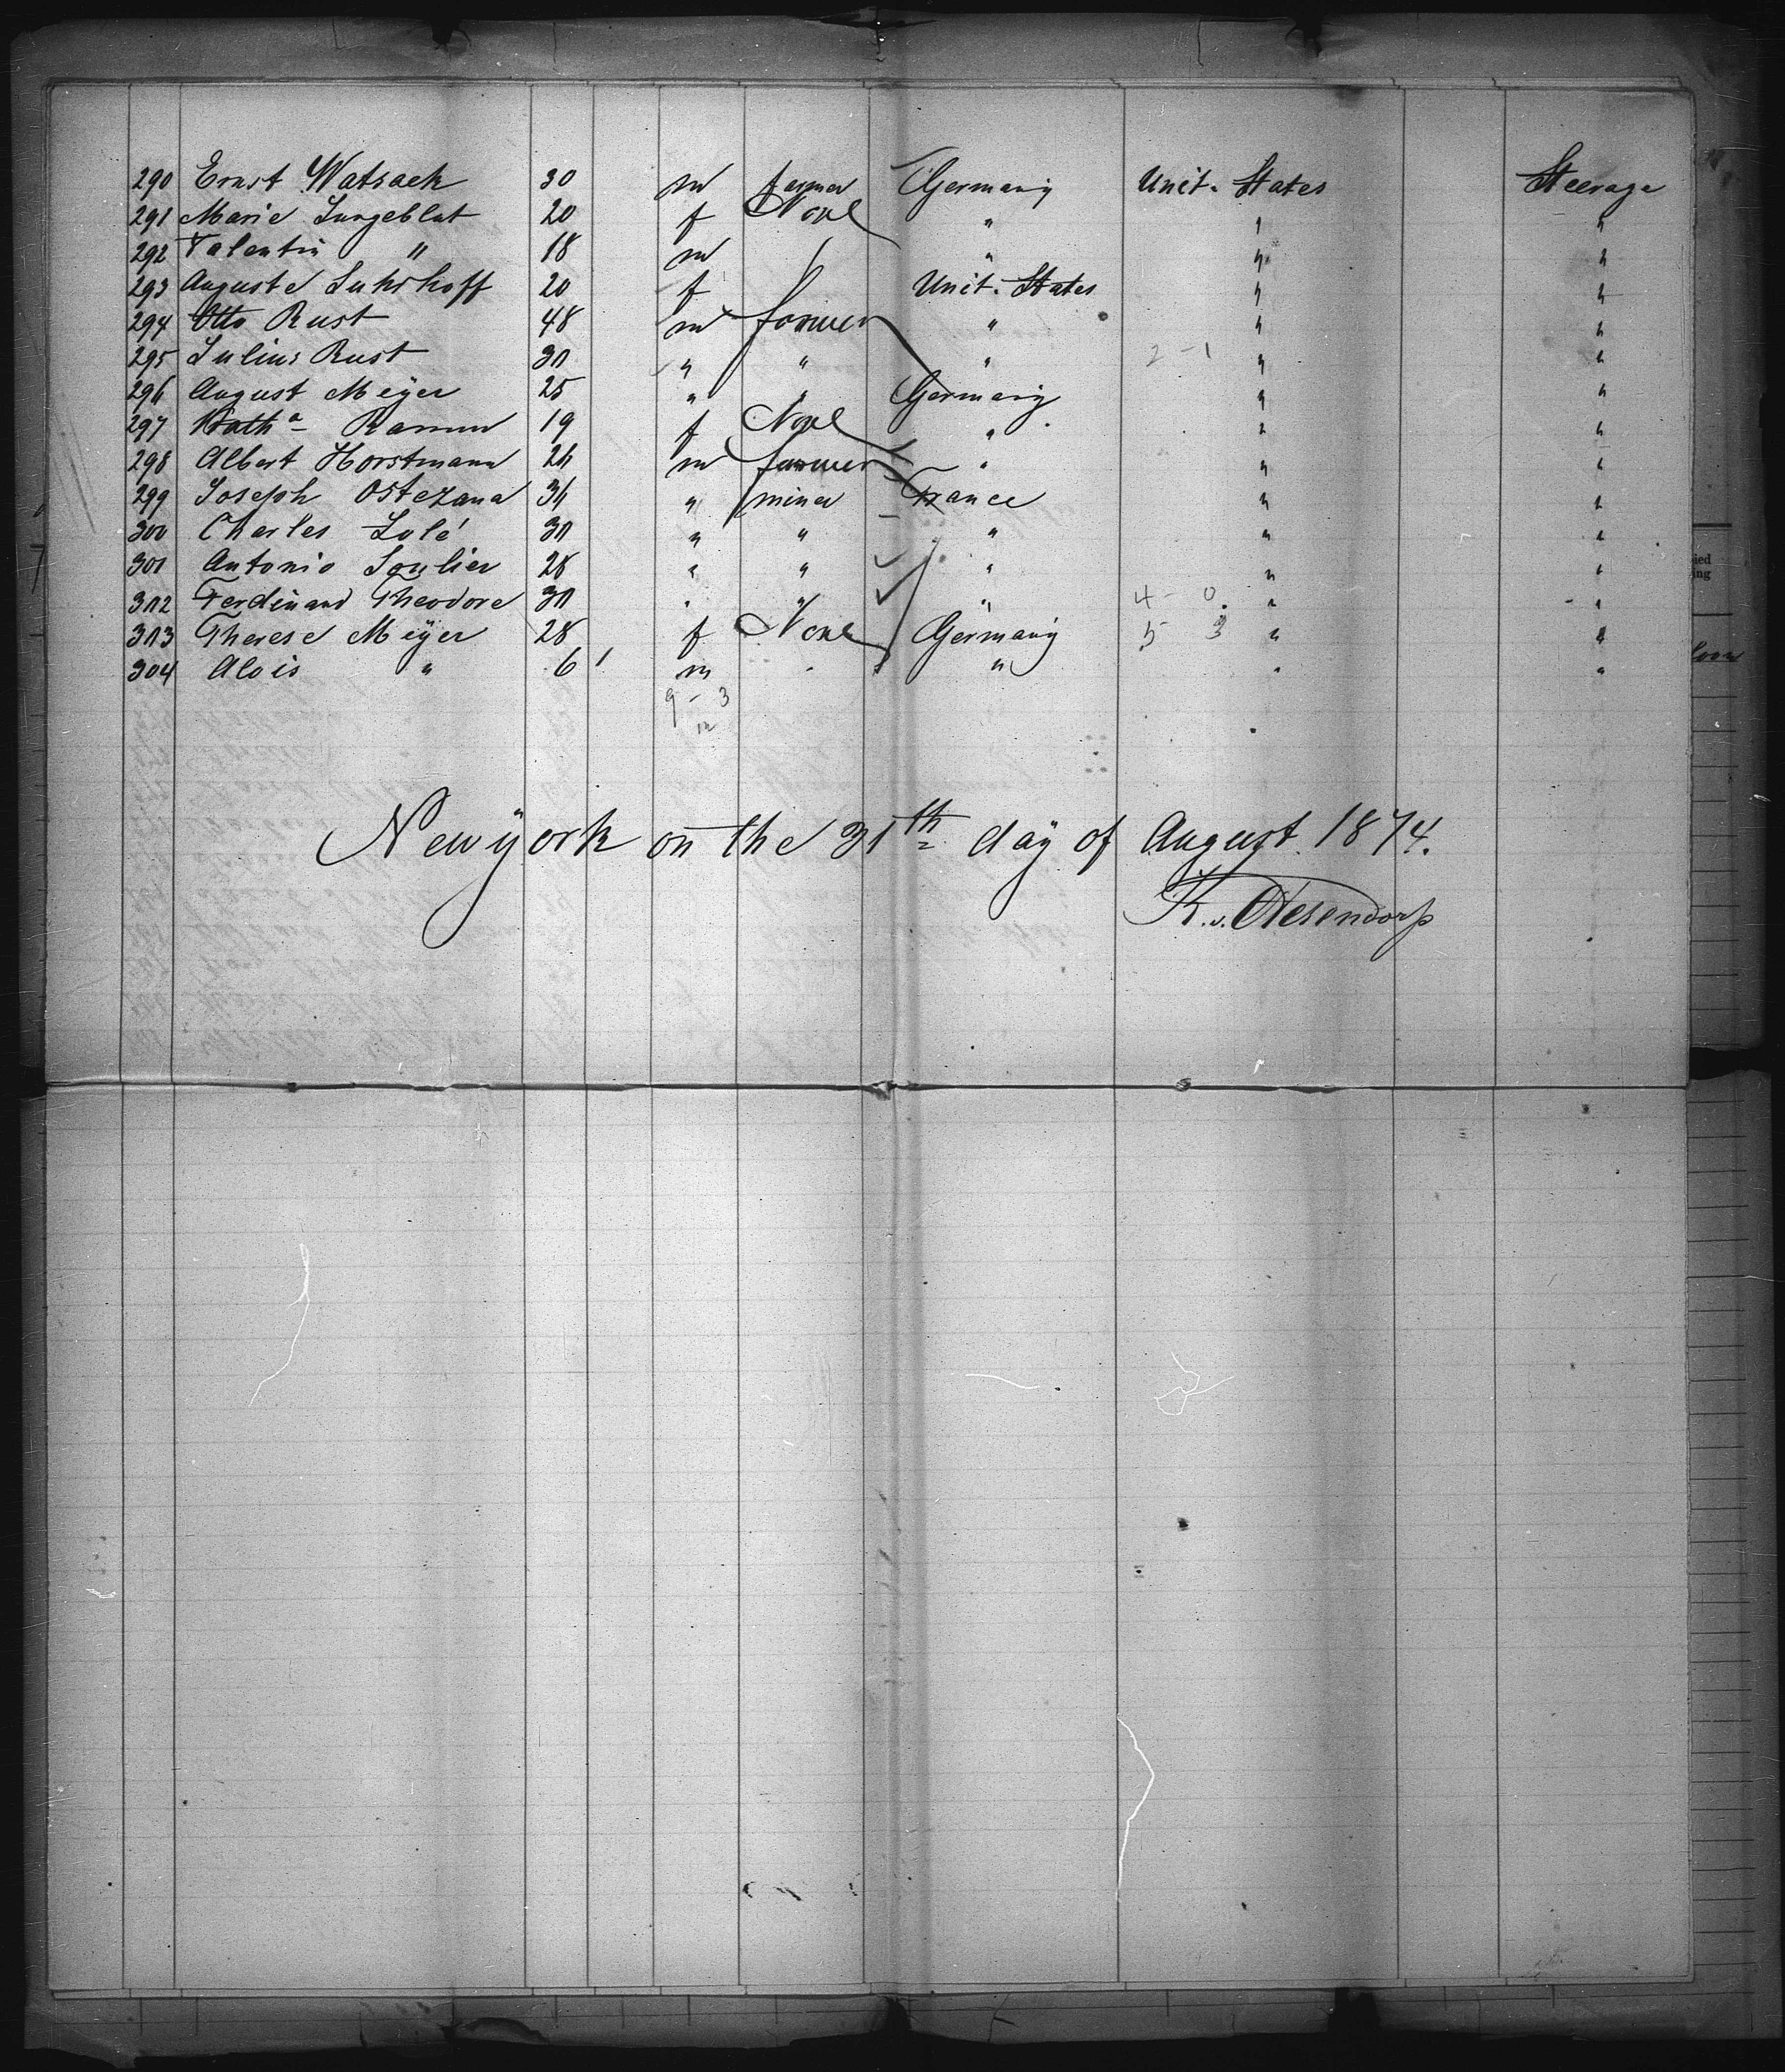 290 Ernst Watsack 30 m farmer Germany Unit. States Steerage
291 Marie Jungeblut 20 f None " " "
292 Valentin " 18 m " " "
293 Auguste Suhrhoff 20 f Unit. States " "
294 Otto Rust 48 m farmer " " "
295 Julius Rust 30 " " " 2 - 1 " "
296 August Meÿer 25 " " Germany " "
297 Kath a Ramm 19 f None " " "
298 Albert Horstmann 24 m farmer " " "
299 Joseph Ostezana 34 " miner France " "
300 Charles Lolé 30 " " " " "
301 Antonio Soulier 28 " " " " "
302 Ferdinand Theodore 30 " " " 4 - 0 " "
303 Therese Meÿer 28 f None Germany 5 3 " "
304 Alois " 6 m " " " "
9 - 3
12
Newÿork on the 31th day of August 1874.
K. v. Oterendorp